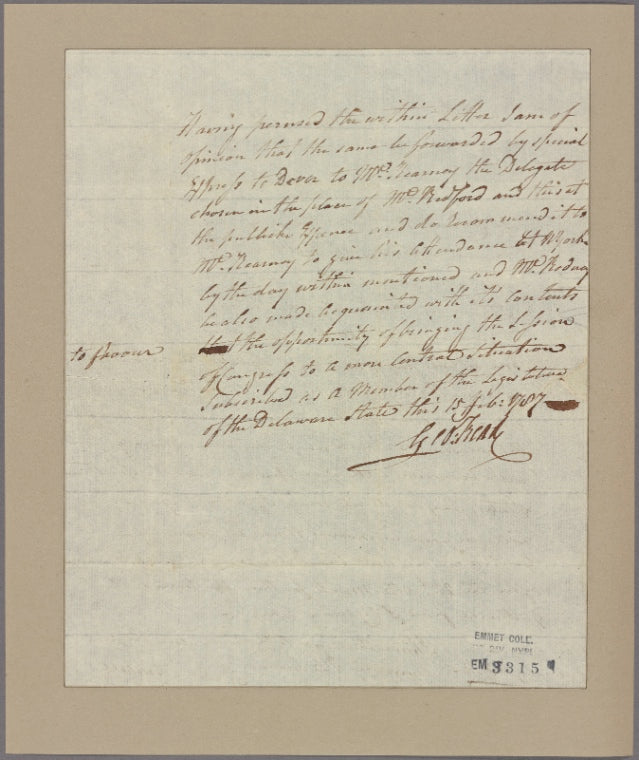 Having perused the within Letter I am of
opinion that the same be forwarded by special
Express to Dover to Mr. Kearney the Delegate
chosen in the place of Mr. Bedford and this at
the publick Expence and do recommend it to
Mr. Kearney to give his attendance at NYork
by the day within mentioned and Mr. Rodney
be also made acquainted with its contents
to favour the opportunity of bringing the Session
of Congress to a more Central Situation
Subscribed as a Member of the Legislature
of the Delaware State this 15 Feb: 1787
Geo:
EMMET COLL.
DIV. NYPL
EM 3315